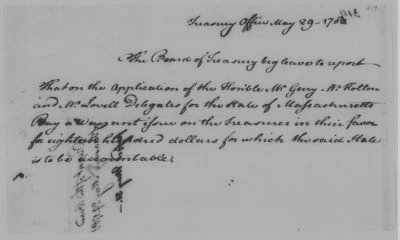 Treasury Office May 29 - 178
The Board of Treasury beg leave to report
That on the Application of the Honble Mr Gerry Mr Holton
and Mr Lovell Delegates for the State of Massachusetts
Bay a warrant issue on the Treasurer in their favor
for eighteen hundred dollars for which the said State
is to be accountable: